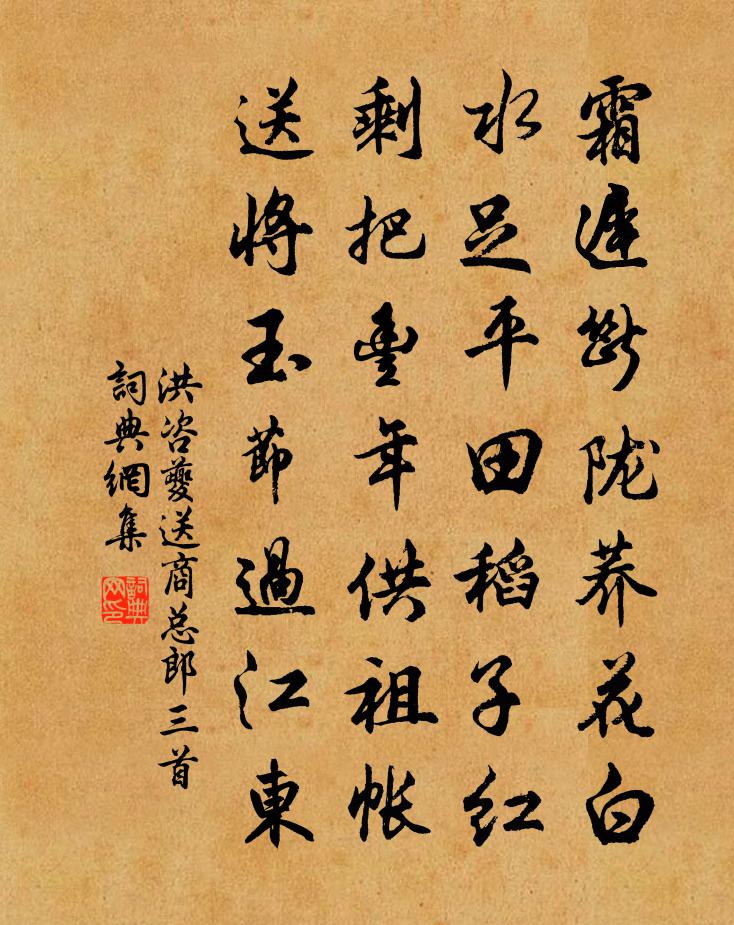 霜遲斷陇荞花白
水足平田稻子红
剩把豊年供祖帐
送將玉節過江東
洪咨夔送商总郎三首
詞典網集
詞典网印